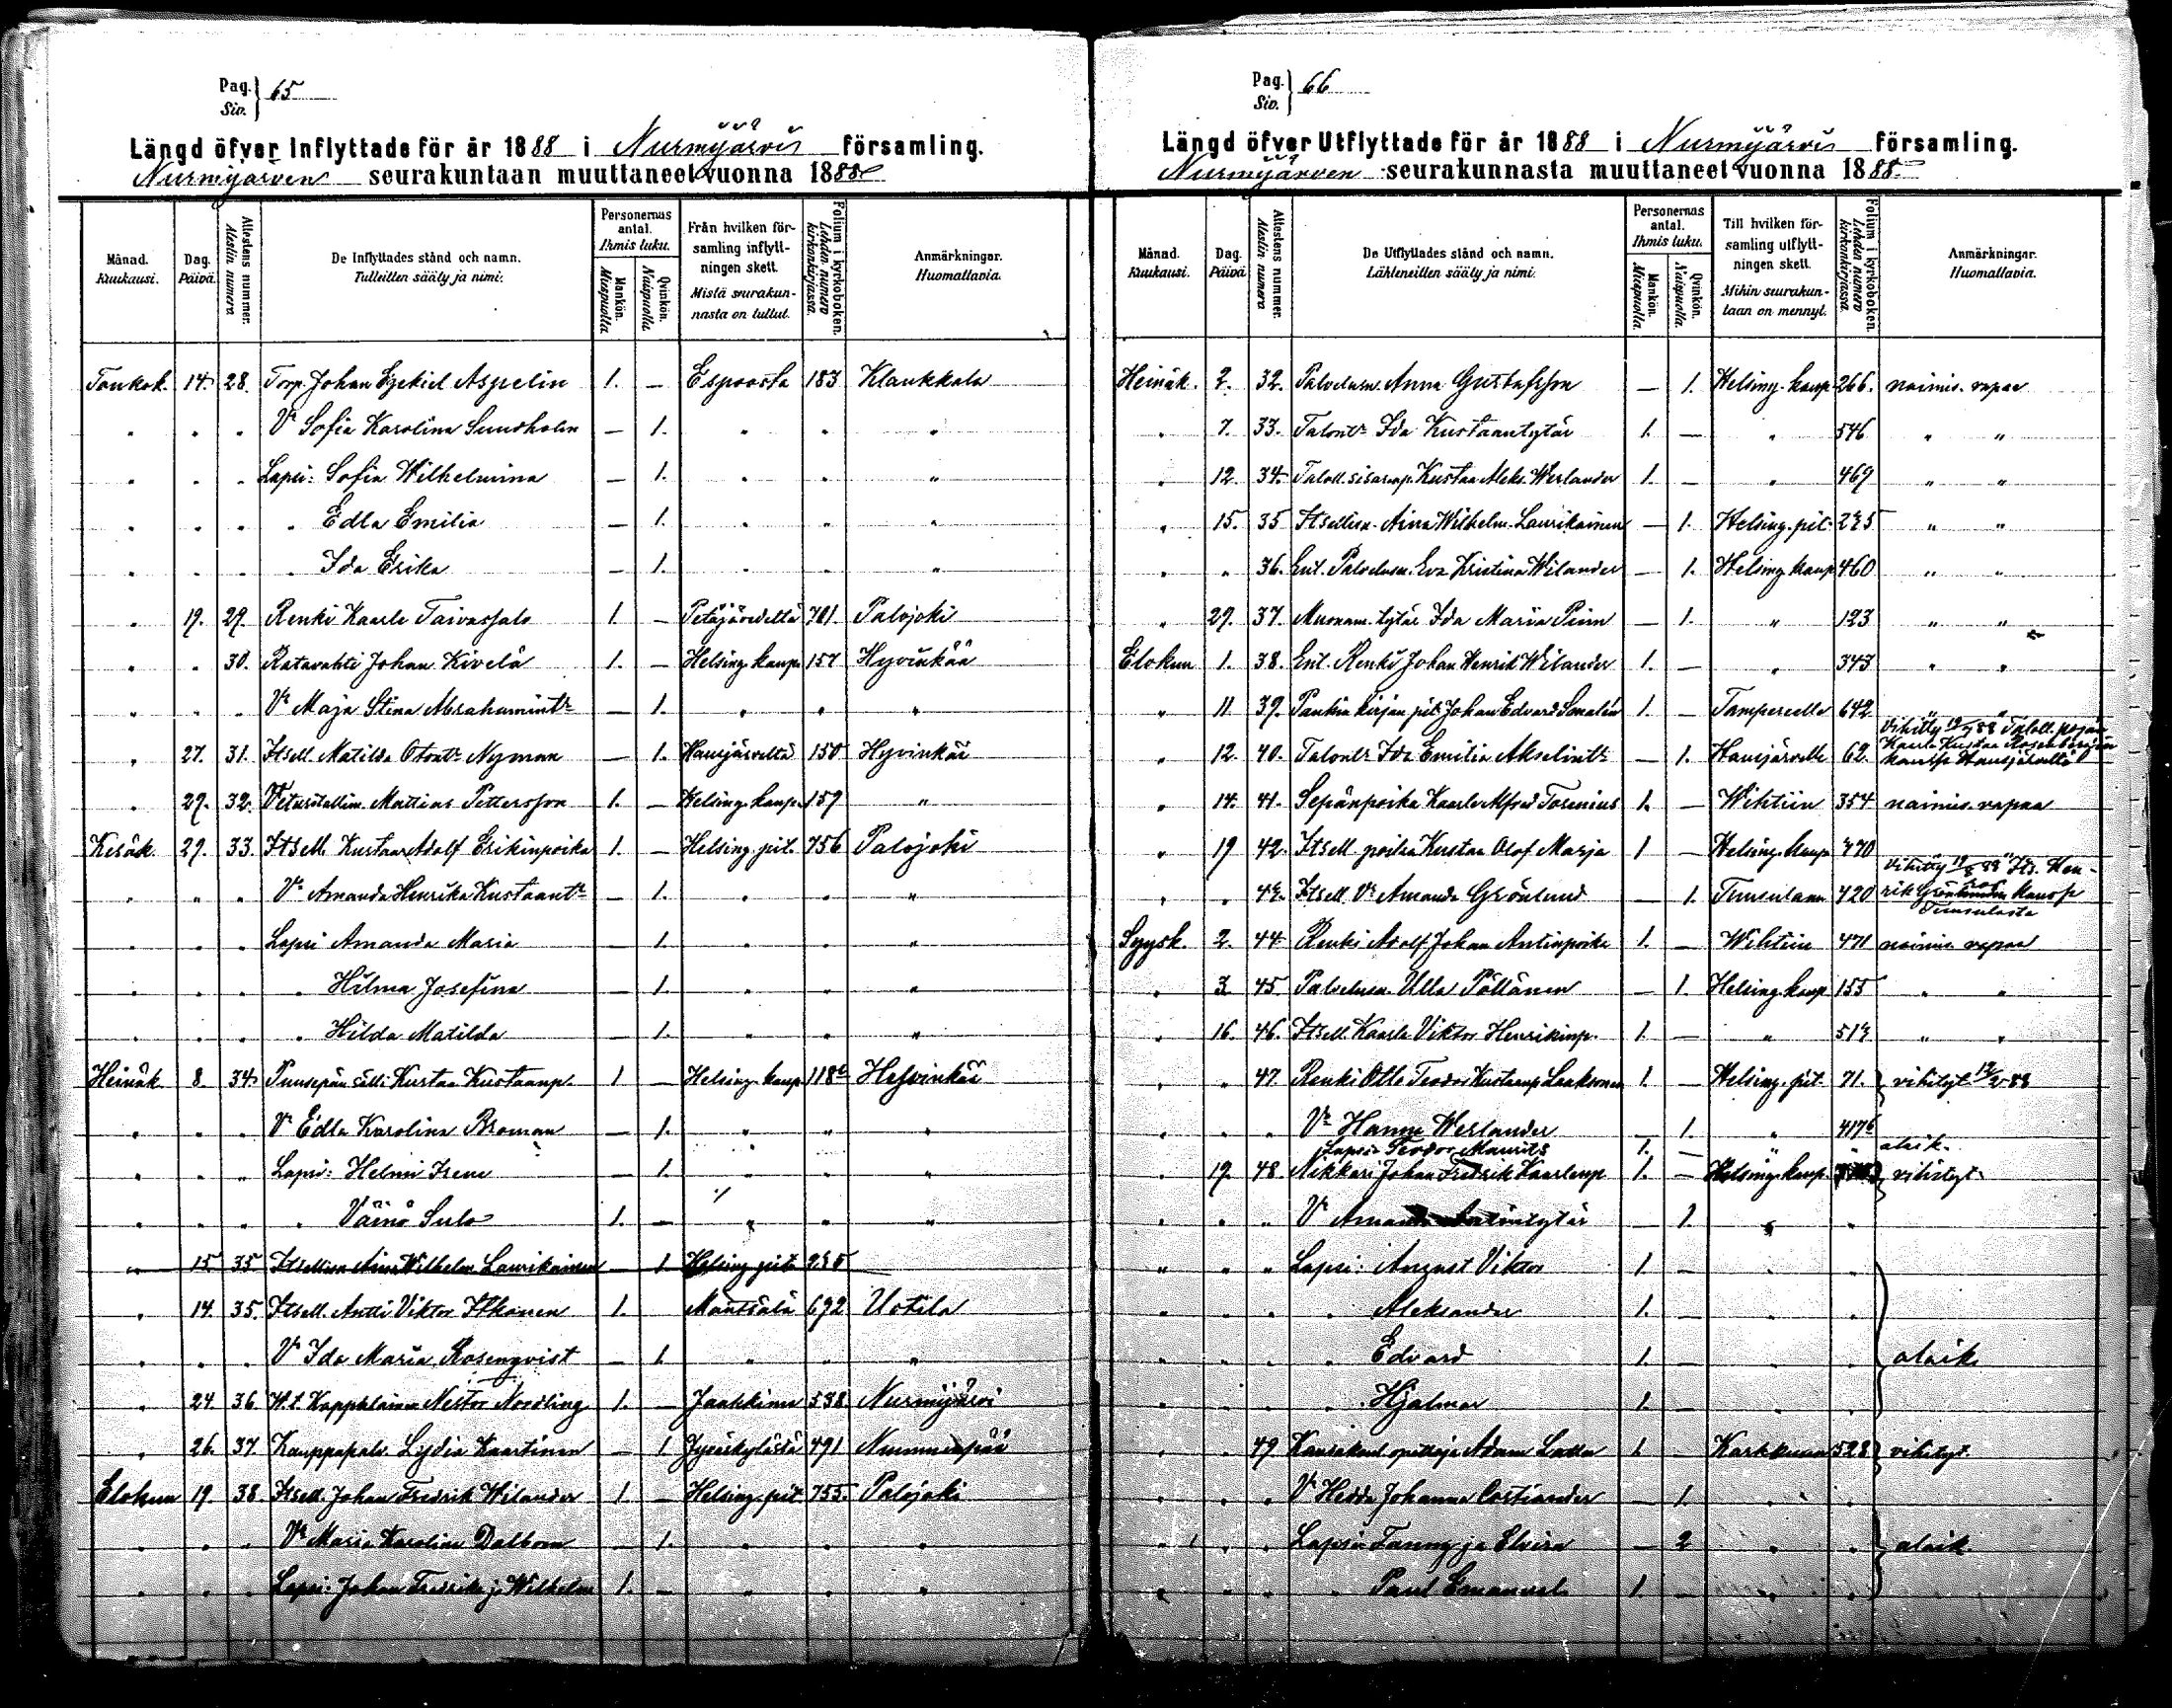 Pag. Siv. } 65
Längd öfver Inflyttade för år 1888 i Nurmijärvis församling.
Nurmijärven seurakuntaan muuttaneet vuonna 1888
Månad. Kuukausi. Dag. Päivä. Attestens nummer. Atestin numero De Inflyttades stånd och namn. Tulleitten sääty ja nimi. Personernas antal. Ihmis luku. Mankön. Miespuolia. Qvinkön. Naispuolia. Från hvilken församling inflyttningen skett. Mistä seurakunnasta on tullut. Folium i kyrkoboken. Lehden numero kirkonkirjassa. Anmärkningar. Huomattavia.
Toukok. 14. 28. Torp. Johan Ezekiel Aspelin 1. — Espoosta 183 Klaukkala
" " " Vo Sofia Karolina Sundholm — 1. " " "
" " " Lapsi: Sofia Wilhelmina — 1. " " "
" " " " Edla Emilia — 1. " " "
" " " " Ida Erika — 1. " " "
" 19. 29. Renki Kaarle Taivassalo 1. — Petäjävedeltä 701 Palojoki
" " 30. Ratavahti Johan Kivelä 1. — Helsing. kaup. 157 Hyvinkää
" " " Vo Maja Stina Abrahamintr — 1. " " "
" 27. 31. Itsell. Matilda Otontr Nyman — 1. Hausjärveltä 150 Hyvinkää
" 29. 32. Veturitallim. Mattias Pettersson 1. — Helsing. kaup. 159 "
Kesäk. 29. 33. Itsell. Kustaa Adolf Erikinpoika 1. — Helsing. pit. 756 Palojoki
" " " Vo Amanda Henrika Kustaantr — 1. " " "
" " " Lapsi Amanda Maria — 1. " " "
" " " " Hilma Josefina — 1. " " "
" " " " Hilda Matilda — 1. " " "
Heinäk. 8 34. Puusepän sälli Kustaa Kustaanp. 1 — Helsing. kaup. 118 Hyvinkää
" " " Vo Edla Karolina Broman — 1. " " "
" " " Lapsi: Helmi Irene — 1. " " "
" " " " Väinö Sulo 1. — " " "
" 15 35 Itsellisn. Aina Wilhelm. Laurikainen — 1 Helsing. pit. 235
" 14. 35. Itsell. Antti Viktor Itkonen 1. Mäntsälä 692 Uotila
" " " Vo Ida Maria Rosenqvist — 1. " " "
" 24. 36. W.t. Kappalainen Nestor Nordling 1. — Jaakkima 538. Nurmijärvi
" 26. 37 Kauppapalv. Lydia Kaartinen — 1 Jyväskylästä 491 Nummenpää
Elokuu 19. 38. Itsell. Johan Fredrik Wilander 1. — Helsing. pit. 755. Palojoki
" " " Vo Maria Karolina Dalbom — 1. " " "
" " " Lapsi: Johan Fredrik ja Wilhelm 1. — " " "
Pag. Siv. } 66
Längd öfver Utflyttade för år 1888 i Nurmijärvis församling.
Nurmijärven seurakunnasta muuttaneet vuonna 1888.
Månad. Kuukausi. Dag. Päivä Attestens nummer. Atestin numero De Utflyttades stånd och namn. Lähteneitten sääty ja nimi. Personernas antal. Ihmis luku. Mankön. Miespuolia. Qvinkön. Naispuolia. Till hvilken församling utflyttningen skett. Mihin seurakuntaan on mennyt. Folium i kyrkoboken. Lehden numero kirkonkirjassa. Anmärkningar. Huomattavia.
Heinäk. 2. 32. Palvelusn. Anna Gustafsson — 1. Helsing. kaup. 266. naimis. vapaa
" 7. 33. Talontr Ida Kustaantytär 1. — " 546 " "
" 12. 34. Taloll. sisarenp. Kustaa Aleks. Werlander 1. — " 469 " "
" 15. 35 Itsellisn. Aina Wilhelm. Laurikainen — 1. Helsing. pit. 235 " "
" " 36. Ent. Palvelusn. Eva Kristina Wilander — 1. Helsing. kaup. 460 " "
" 29. 37. Muonam. tytär Ida Maria Piim — 1. " 123 " "
Elokuu 1. 38. Ent. Renki Johan Henrik Wilander 1. — " 343 " "
" 11 39. Pankin kirjan pit. Johan Edvard Smalén 1. — Tampereelle 642 " "
" 12. 40. Talontr Ida Emilia Akselintr — 1. Hausjärvelle 62. Vihitty 19/7 88 Taloll. pojan Kaarle Kustaa Rosenbergin kanssa Hausjärvellä
" 14. 41. Sepänpoika Kaarle Alfred Torenius 1. — Wihtiin 354 naimis. vapaa
" 19 42. Itsell. poika Kustaa Olof Marja 1 — Helsing. kaup. 470 " "
" " 43. Itsell. Vo Amanda Grönlund — 1. Tuusulaan 420 Vihitty 19/8 88 Its. Henrik Grönlundin kanssa Tuusulasta
Syysk. 2. 44 Renki Adolf Johan Antinpoika 1. — Wihtiin 471 naimis. vapaa
" 3. 45. Palvelusn. Ulla Pöllänen — 1. Helsing. kaup. 155 " "
" 16. 46. Itsell. Kaarle Viktor Henrikinp. 1. — " 513 " "
" " 47. Renki Otto Teodor Kustaanp. Laaksonen 1. — Helsing. pit. 71. vihityt 12/2 88
" " " Vo Hanna Werlander — 1. " 4176
Lapsi: Teodor Maurits 1. — " " alaik.
" 19. 48. Nikkari Johan Fredrik Kaarlenp. 1. — Helsing. kaup. vihityt
" " " Vo Amanda Antintytär — 1. " "
" " " Lapsi: August Viktor 1. — " "
" " " " Aleksander 1. — " "
" " " " Edvard 1. — " " alaik.
" " " " Hjalmar 1. — " "
" " 49 Kansakoul. opettaja Adam Latta 1. — Karkkuun 528 vihityt.
" " " Vo Hedda Johanna Costiander — 1. " "
" " " Lapsi: Fanny ja Elvira — 2 " " alaik.
" " " " Paul Emanuel 1. — " "